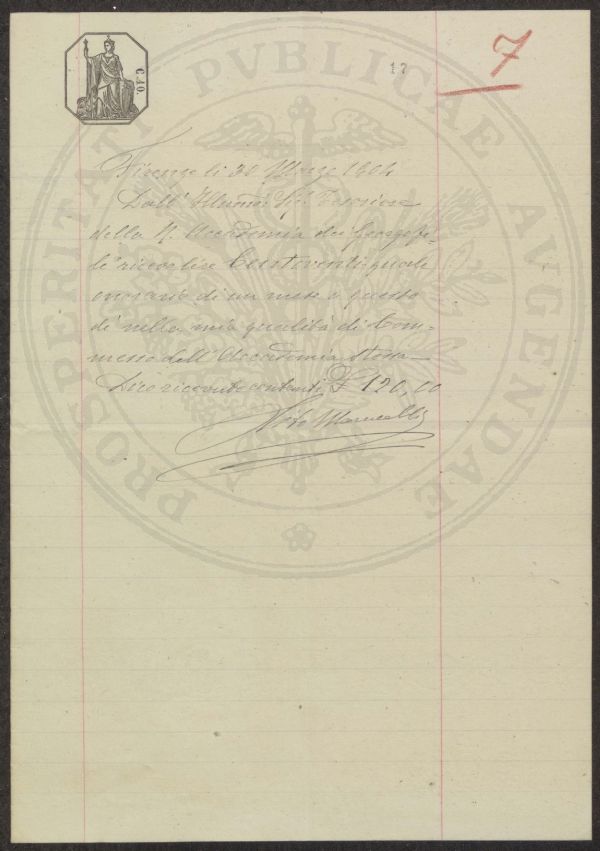 C. 10.
17
7
PROSPERITATI PVBLICAE AVGENDAE
Firenze li 30 Marzo 1904
Dall' Illmo Sig. Tesoriere
della R. Accademia dei Georgofi-
li ricevo lire Centoventi quale
onorario di un mese a questo
dì nella mia qualità di Com-
messo dell' Accademia stessa
Dico ricevute contanti £ 120,00
Marucelli